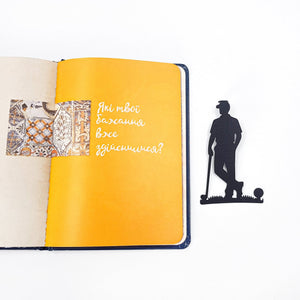 Які твої
бажання
вже
здійснились?